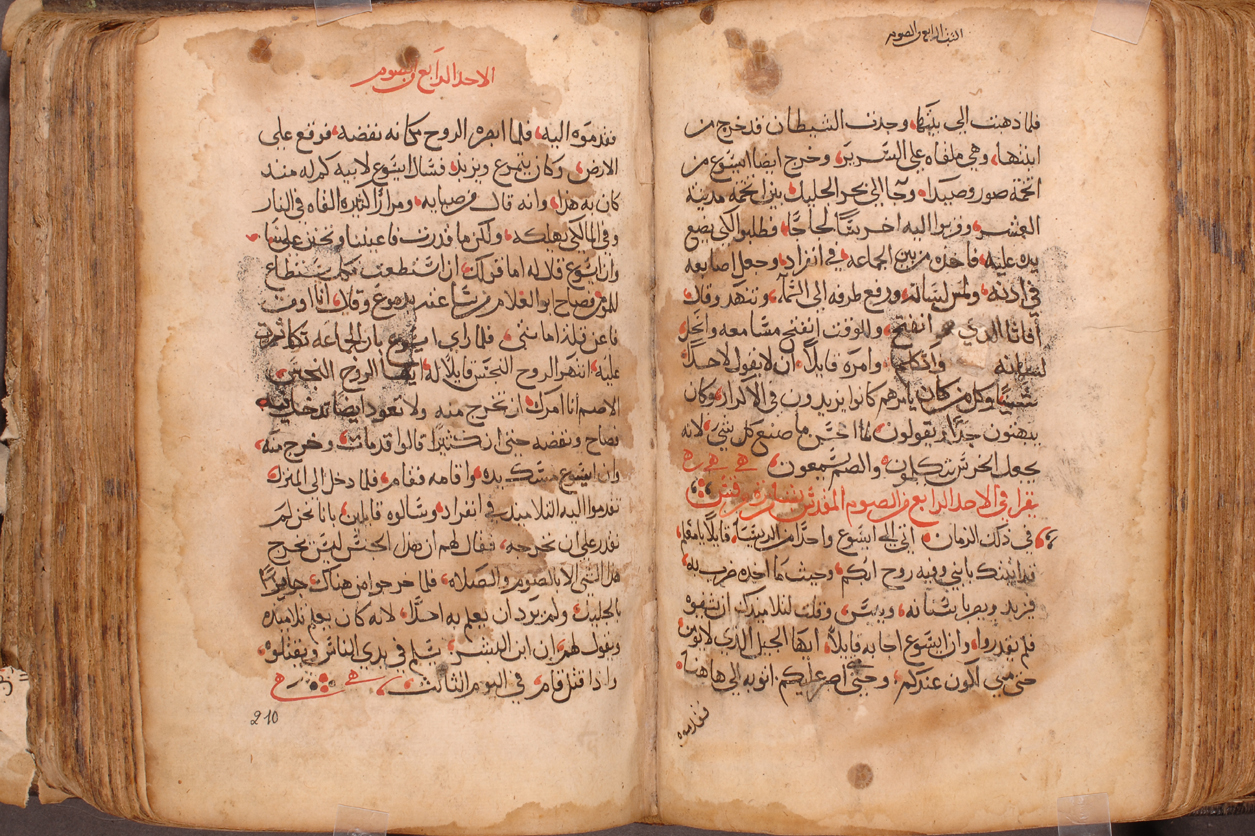 السبت الرابع من الصوم
فلما ذهبت الى بيتها وجدت الشيطان قد خرج من
ابنتها وهي ملقاه على السرير وخرج ايضا ايسوع من
تخمة صور وصيدا وجا الى بحر الجليل بين تخمه مدينة
العشر وقربوا اليه اخرسًا لجاجًا فطلبوا لكي يضع
يده عليه فاخذه من بين الجماعه في انفراد وجعل اصابعه
في اذنه ولمس لسانه ورفع طرفه الى السمآ وتنهد وقال
أفاثا الذي هو انفتح وللوقت انفتح مسامعه وانحل
لسانه وانكلم وامره قايلًا ان لا يقول لاحد
شيًا وكل من كان يامرهم كانوا يزيدون في الاكراز وكان
يبهتون جدًا ويقولون ما احسن ما صنع كل شي لانه
يجعل الخرس يتكلمون والصم يسمعون
يقرا في الاحد الرابع من الصوم المقدس بشارة مرقس
في ذلك الزمان اتى الى ايسوع واحدًا من الريسًا قايلًا يامعلم
قد اتيتك بابني وفيه روح ابكم وحيث ما اخذه ضرب به
فيزبد ويصر باسنانه وييبس وقلت لتلاميذك ان يشفوه
فلم يقدروا وان ايسوع اجابه قايلًا ايها الجيل الذي لا يؤمن
حتى متى اكون عندكم وحتى اصبر عليكم اتوني به الى هاهنا
فقدموه
الاحد الرابع من الصوم
فقدموه اليه فلما ابصره الروح كانه نفضه فوقع على
الارض وكان يتمرغ ويزبد فسال ايسوع لابيه كم له منذ
كان به هذا وانه قال من صبايه ومرارًا كثيره القاه في النار
وفي الما لكي يهلكه ولكن ما قدرت فاعيننا وتحنن علينا
وان ايسوع قال له اما قولك ان استطعت فكل يستطاع
للمؤمن فصاح ابو الغلام من ساعته بدموع وقال انا اومن
فاعن قلة امانتي فلما راى ايسوع بان الجماعه تكاثرت
عليه انتهر الروح النجس قايلًا له ايها الروح النجس
الاصم أنا امرك ان تخرج منه ولا تعود ايضا تدخل فيه
فصاح ونفضه حتى ان كثيرًا قالوا قد مات وخرج منه
وان ايسوع مسك بيده واقامه فقام فلما دخل الى المنزل
تقدموا اليه التلاميذ في انفراد وسالوه قايلين باننا نحن لم
نقدر على ان نخرجه فقال لهم ان هذا الجنس ليس يخرج
بشي الا بالصوم والصلاه فلما خرجوا من هناك جازوا
بالجليل ولم يرد ان يعلم به احدًا لانه كان يعلم تلاميذه
ويقول لهم ان ابن البشر يسلم في يدي الناس ويقتلوه
واذا قتل قام في اليوم الثالث
210